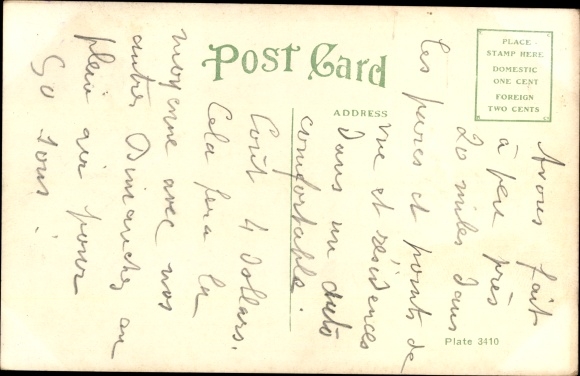 POST CARD
ADDRESS
PLACE
STAMP HERE
DOMESTIC
ONE CENT
FOREIGN
TWO CENTS
Plate 3410
Avons fait
à peu près
20 miles dans
les parcs et points de
vue et résidences
Dans un auto
comfortable.
Coût 4 Dollars.
Cela fera la
moyenne avec nos
autres Dimanches au
plein air pour
50 sous!